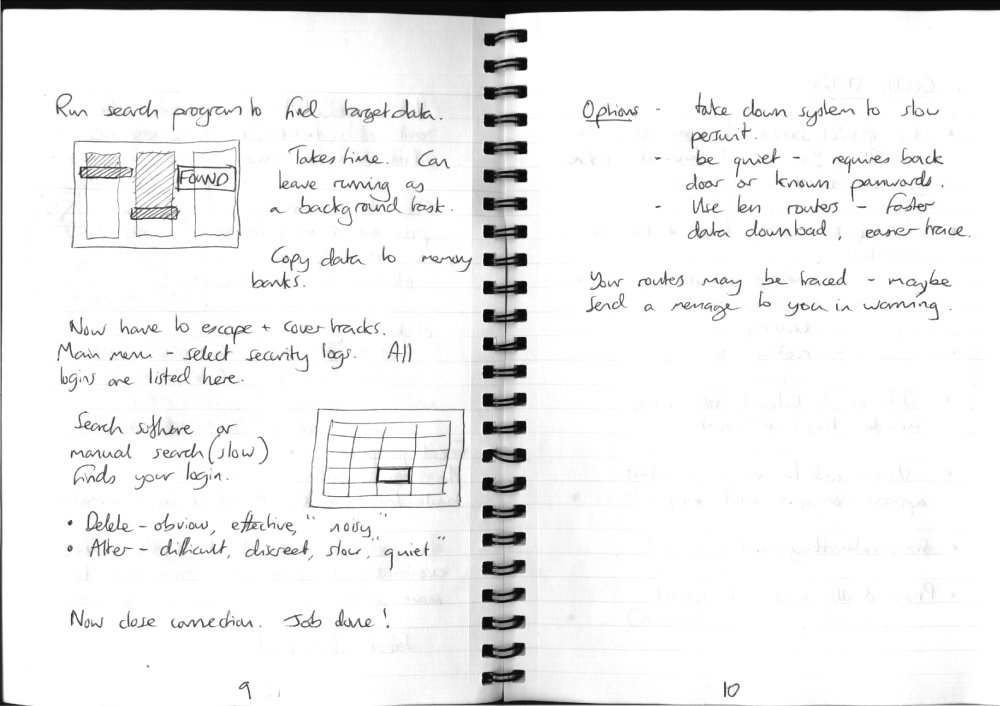 Run search program to find target data.
FOUND
Takes time. Can
leave running as
a background task.
Copy data to memory
banks.
Now have to escape + cover tracks.
Main menu - select security logs. All
logins are listed here.
Search software or
manual search (slow)
finds your login.
• Delete - obvious, effective, "noisy"
• Alter - difficult, discreet, slow, "quiet"
Now close connection. Job done!
9
Options - take down system to slow
persuit.
- be quiet - requires back
door or known passwords.
- Use less routers - faster
data download, easier trace.
Your routes may be traced - maybe
send a message to you in warning.
10